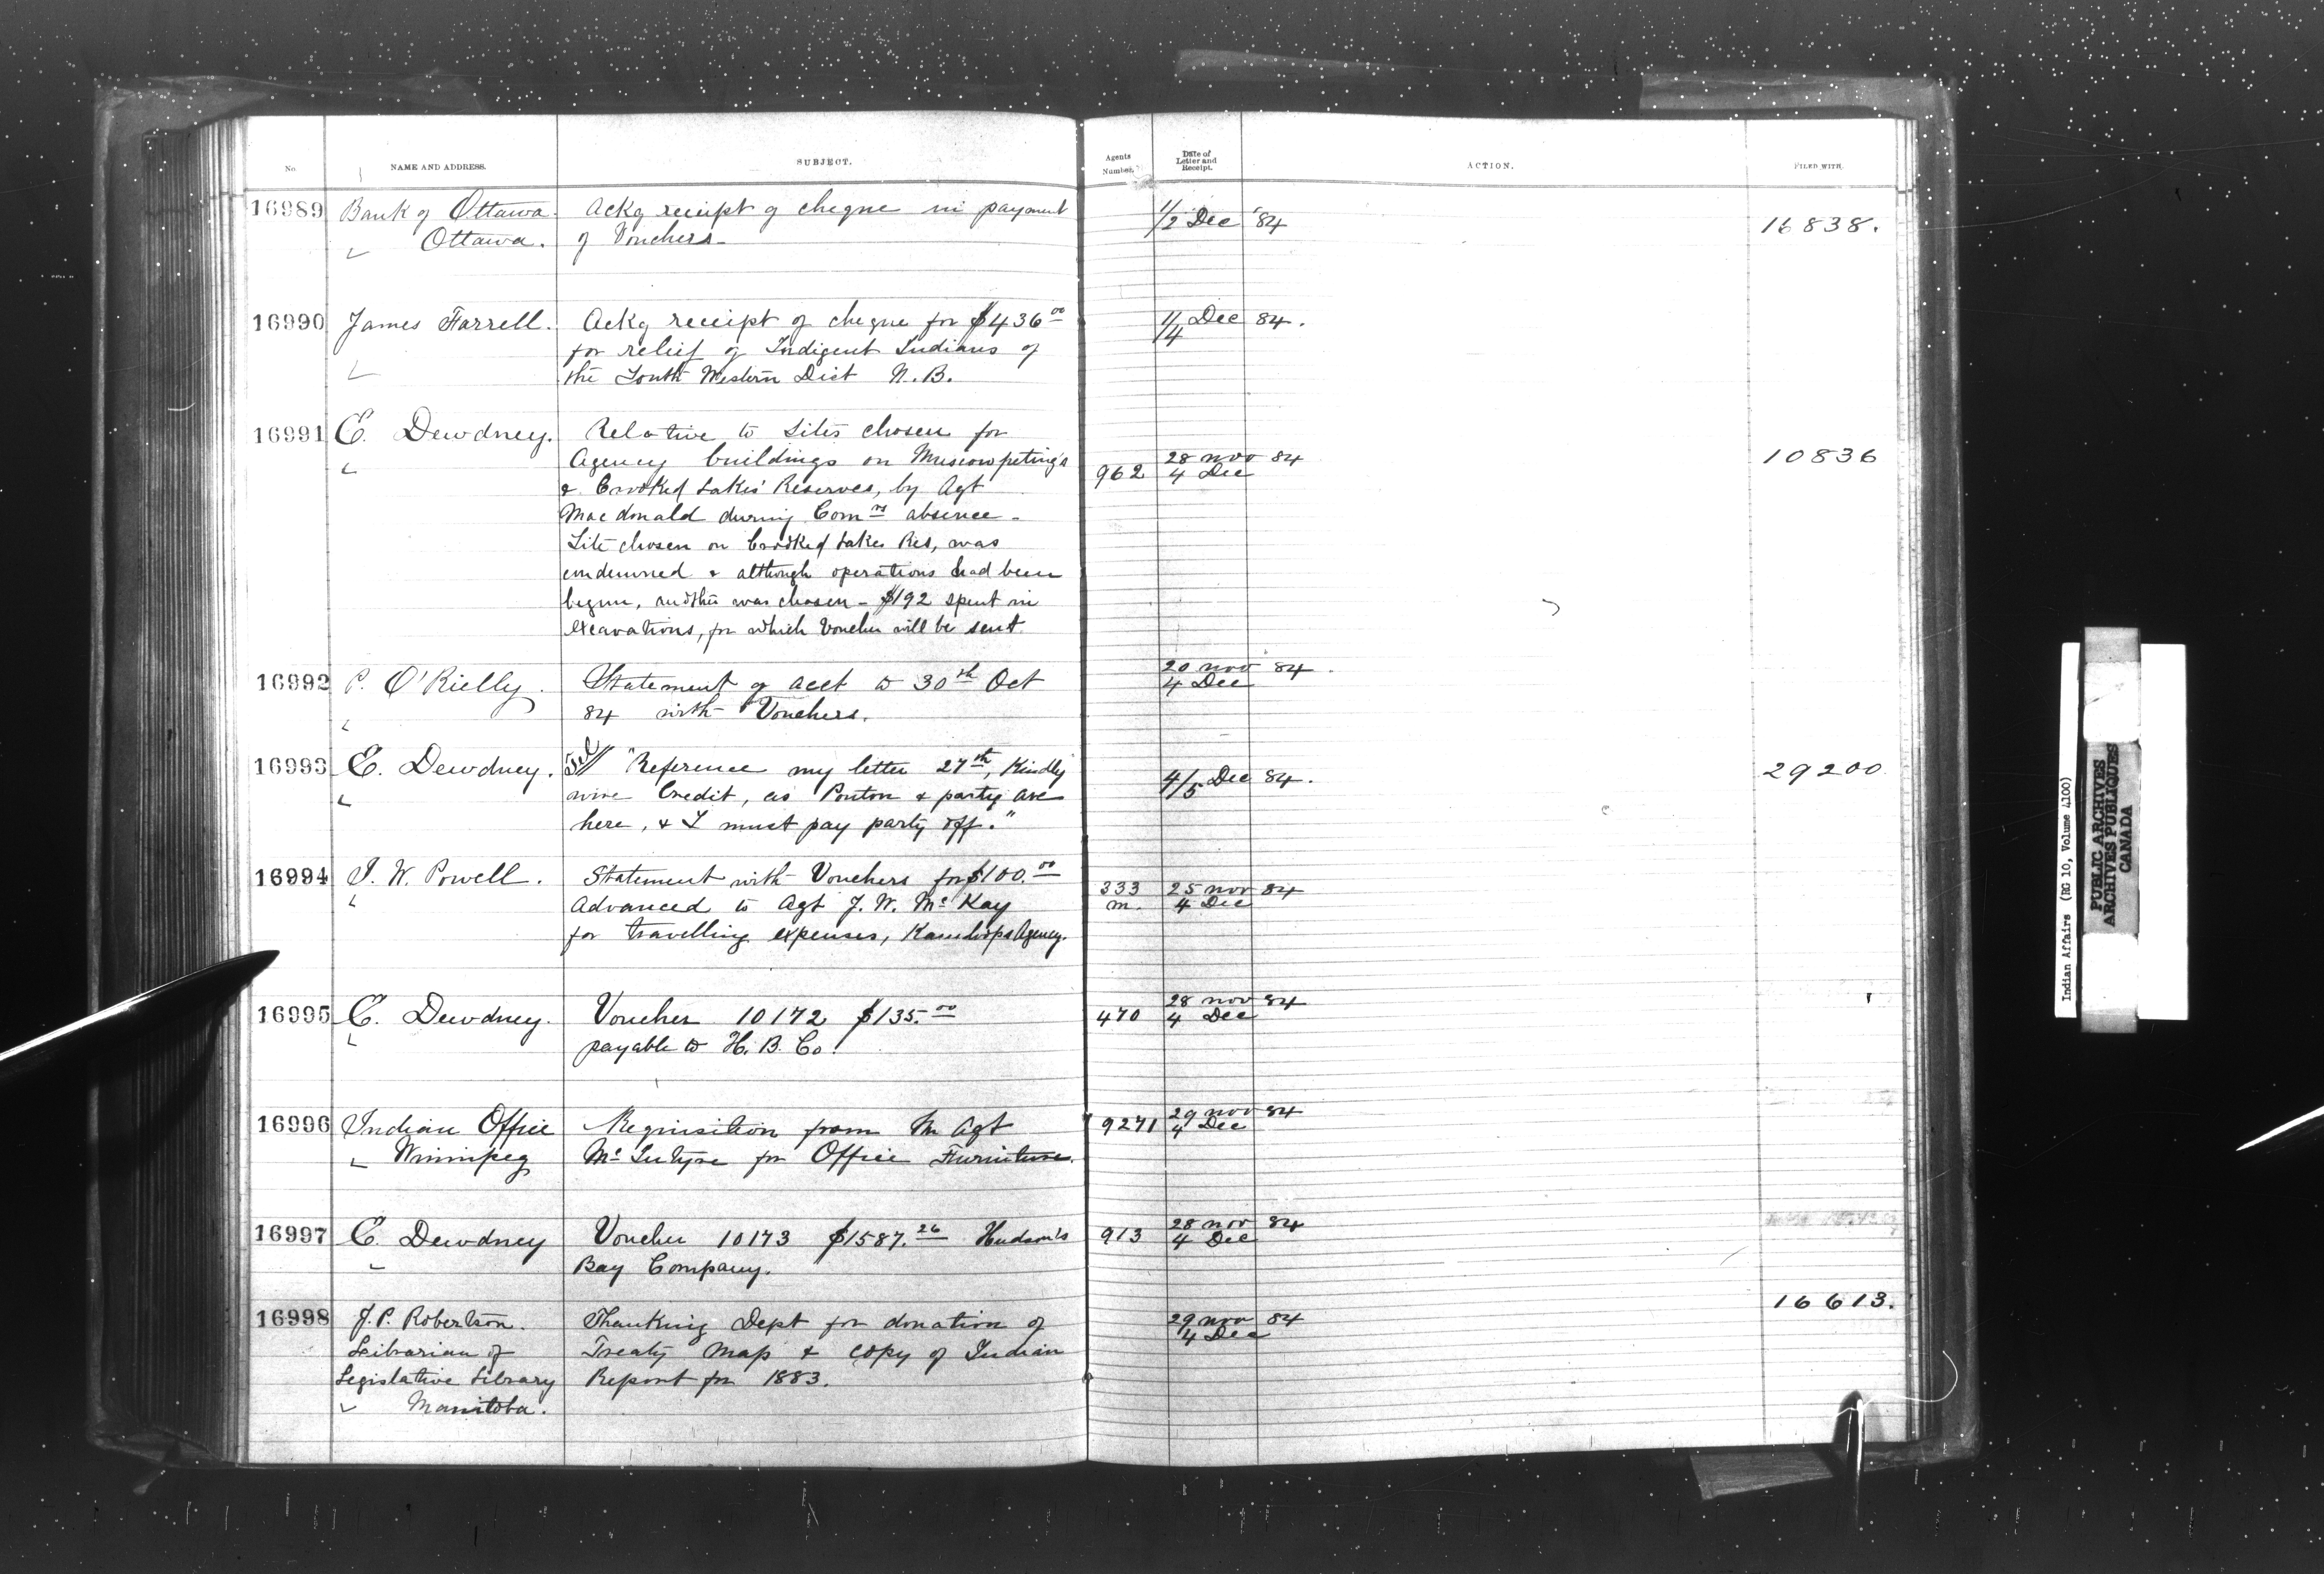 No. NAME AND ADDRESS. SUBJECT. Agents Number. Date of Letter and Receipt. ACTION. FILED WITH.
16989 Bank of Ottawa. Ackg receipt of cheque in payment 1/2 Dec '84 16838.
" Ottawa. of Vouchers.
16990 James Farrell. Ackg receipt of cheque for $436 00 1/4 Dec 84.
for relief of Indigent Indians of
the South Western Dist N.B.
16991 E. Dewdney. Relative to Sites chosen for
Agency buildings on Muscowpeting's 962 28 Nov 84 10836
& Crooked Lakes' Reserves, by Agt 4 Dec
Macdonald during Comrs absence -
Site chosen on Crooked Lakes Res, was
condemned & although operations had been
begun, another was chosen - $192 spent in
excavations, for which Voucher will be sent.
16992 P. O'Rielly. Statement of acct to 30th Oct 20 Nov '84.
84 with Vouchers. 4 Dec
16993 E. Dewdney. Tel "Reference my letter 27th, Kindly 4/5 Dec 84. 29200
wire Credit, as Ponton & party are
here, & I must pay party off."
16994 I. W. Powell. Statement with Vouchers for $100.00 333 25 Nov 84
Advanced to Agt J. W. McKay m. 4 Dec
for travelling expenses, Kamloops Agency.
16995 E. Dewdney. Voucher 10172 $135.00 470 28 Nov 84
payable to H. B. Co. 4 Dec
16996 Indian Office Requisition from Agt 9271 29 Nov 84
" Winnipeg McIntyre for Office Furniture. 4 Dec
16997 E. Dewdney Voucher 10173 $1587.26 Hudson's 913 28 Nov 84
Bay Company. 4 Dec
16998 J. P. Robertson. Thanking Dept for donation of 29 Nov 84 16613.
Librarian of Treaty Map & copy of Indian 4 Dec
Legislative Library Report for 1883.
" Manitoba.
Indian Affairs (RG 10, Volume 4100)
PUBLIC ARCHIVES
ARCHIVES PUBLIQUES
CANADA